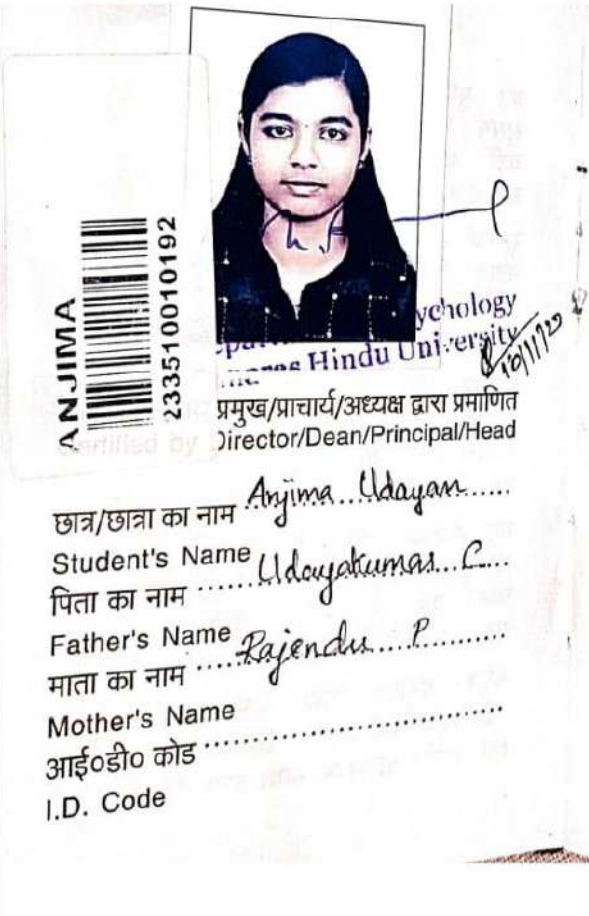 ANJIMA
233510010192
ychology
Hindu University
प्रमुख/प्राचार्य/अध्यक्ष द्वारा प्रमाणित
Certified by Director/Dean/Principal/Head
छात्र/छात्रा का नाम Anjima Udayan
Student's Name
पिता का नाम Udayakumar C
Father's Name
माता का नाम Rajendu P
Mother's Name
आई०डी० कोड
I.D. Code